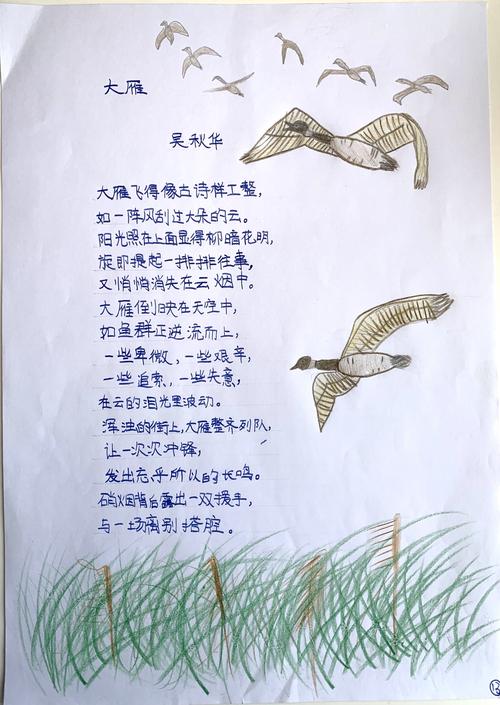 大雁
吴秋华
大雁飞得像古诗样工整，
如一阵风刮过大朵的云。
阳光照在上面显得柳暗花明，
旋即提起一排排往事，
又悄悄消失在云烟中。
大雁倒映在天空中，
如鱼群正逆流而上，
一些卑微，一些艰辛，
一些追索，一些失意，
在云的泪光里波动。
浑浊的街上，大雁整齐列队，
让一次次冲锋，
发出忘乎所以的长鸣。
硝烟背后露出一双援手，
与一场离别搭腔。
13